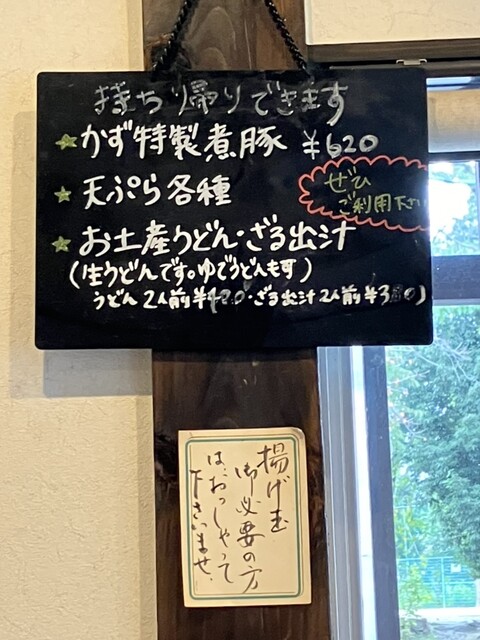 持ち帰りできます
★かず特製煮豚 ¥620
★天ぷら各種
ぜひ
ご利用下さい
★お土産うどん・ざる出汁
(生うどんです。ゆでうどんも可)
うどん2人前¥420・ざる出汁2人前¥3
揚げ玉
御必要の方
は、おっしゃって
下さいませ。